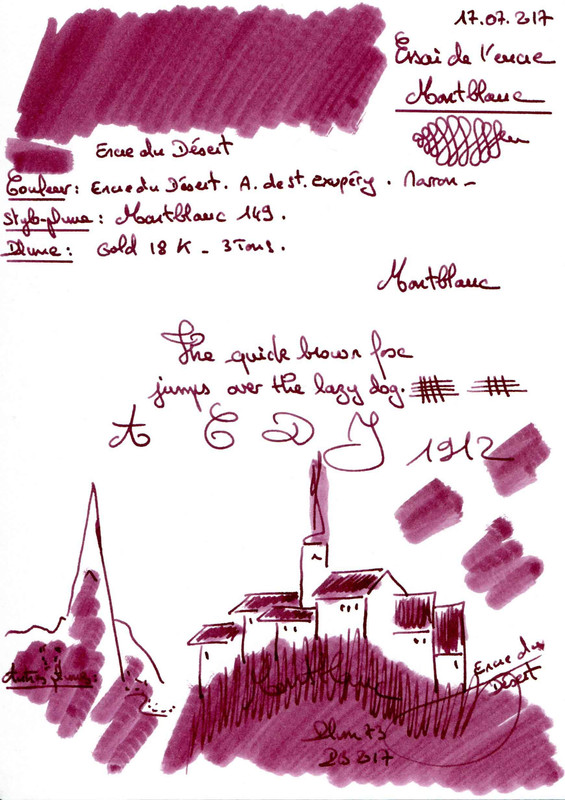 17.07.2017
Essai de l'encre
Montblanc
Encre du Désert
Couleur: Encre du Désert. A. de St. Exupéry. Marron_
Stylo-plume: Montblanc 149.
Plume: Gold 18 K_ 3 Tons.
Montblanc
The quick brown fox
jumps over the lazy dog.
A E D J 1912
Montblanc
Encre du
Désert